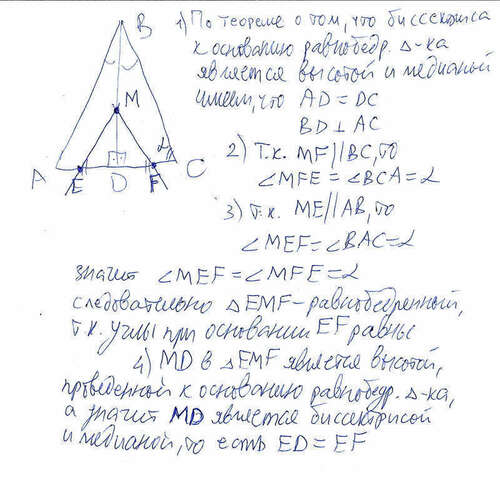 B
M
A
E
D
F
C
α
1) По теореме о том, что биссектриса
к основанию равнобедр. Δ-ка
является высотой и медианой
имеем, что AD = DC
BD ⊥ AC
2) Т.к. MF || BC, то
∠MFE = ∠BCA = α
3) т.к. ME || AB, то
∠MEF = ∠BAC = α
значит ∠MEF = ∠MFE = α
следовательно Δ EMF - равнобедренный,
т.к. углы при основании EF равны
4) MD в ΔEMF является высотой,
проведенной к основанию равнобедр. Δ-ка,
а значит MD является биссектрисой
и медианой, то есть ED = EF